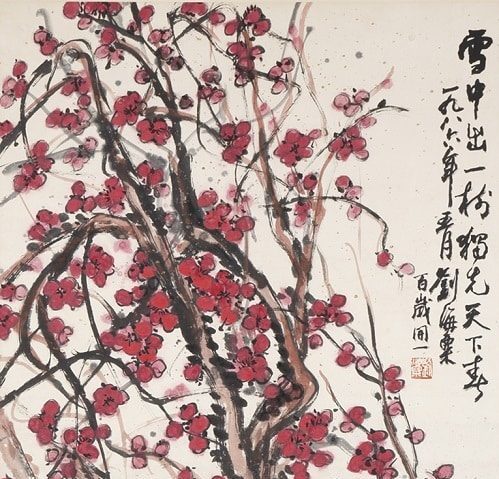 雪中出一树獨先天下春
一九八六年五月劉海粟
百歲開一